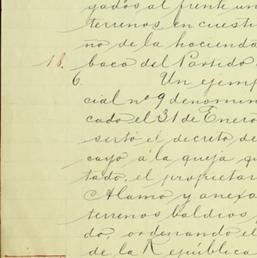 yados al frente un
terrenos en cuesti
no de la hacienda
18. baca del Partido
6. Un ejemp
cial nº 9 denomin
cado el 31 de Enero
sertó el decreto de
cayó á la queja qu
tado, el propietar
Alamo y anexa
terrenos baldíos,
do, ordenando el
de la República